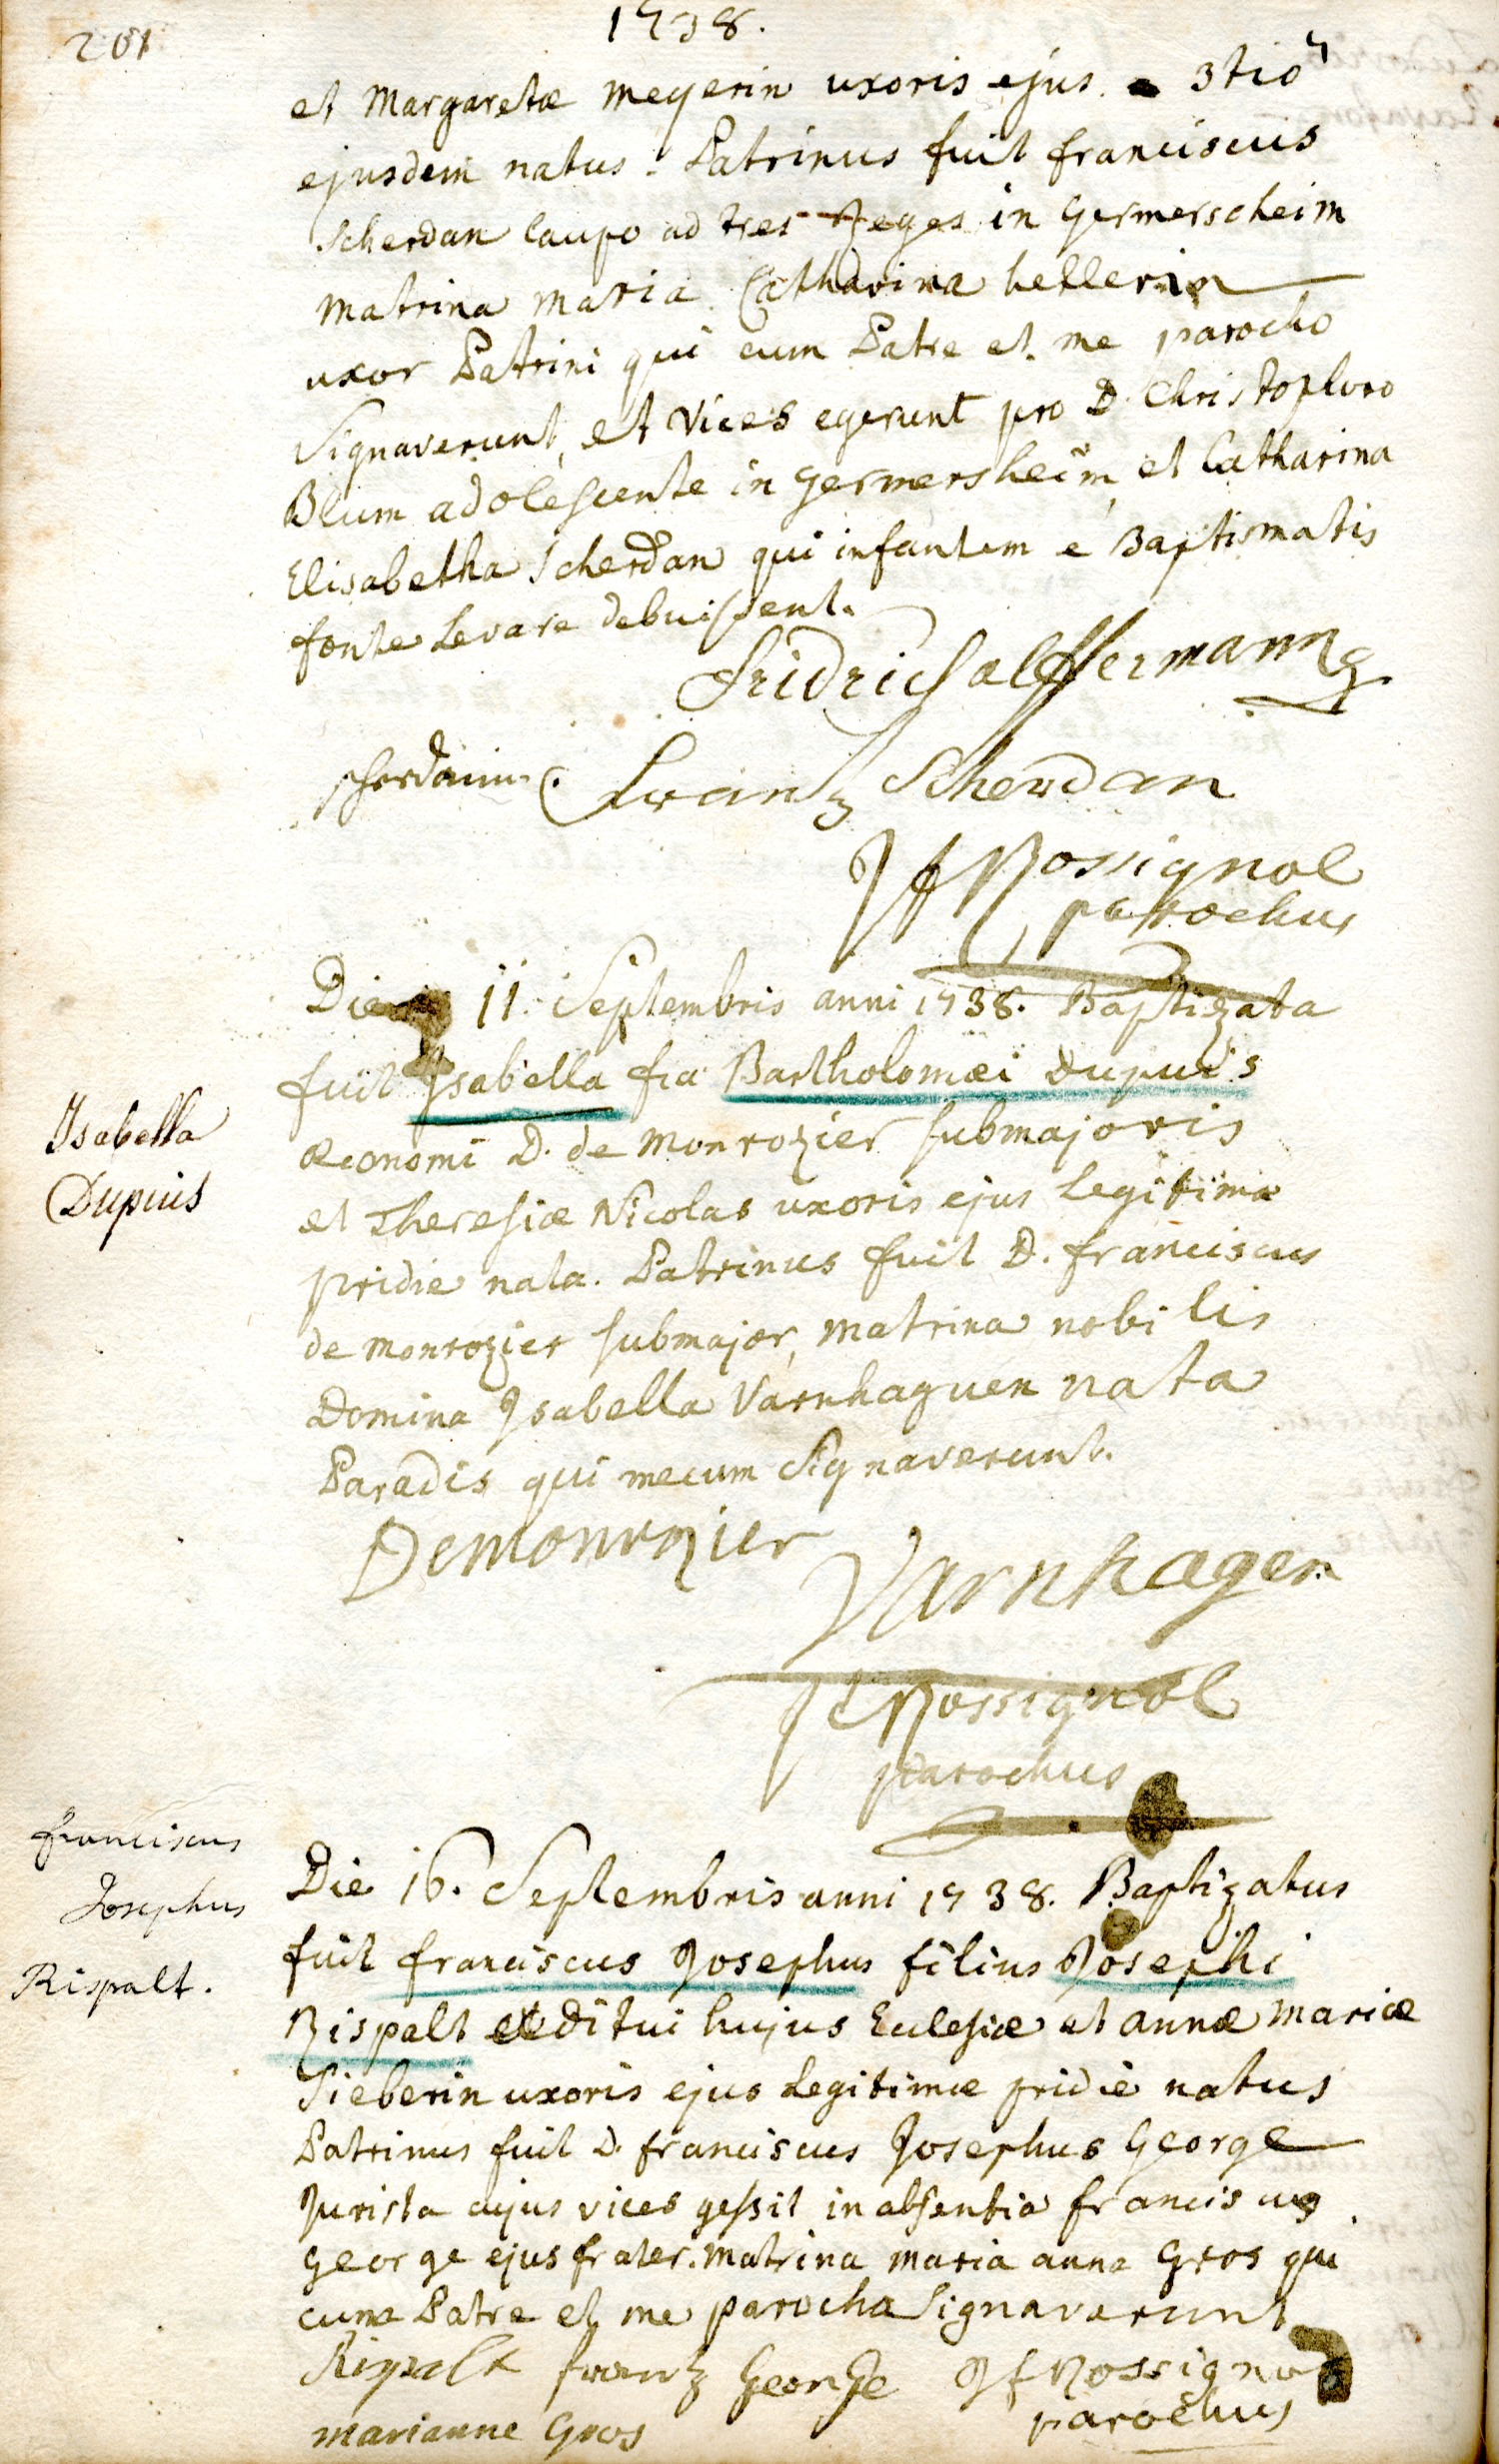 201
1738.
et Margaretæ Meyerin uxoris ejus 3tio
ejusdem natus. Patrinus fuit franciscus
Scherdan Caupo ad tres Reges in Germerscheim
Matrina Maria Catharina hellerin
uxor Patrini qui cum Patre et me parocho
Signaverunt, et vices egerunt pro D. Christophoro
Blum adolescente in germersheim, et Catharina
Elisabetha Scherdan qui infantem e Baptismatis
fonte Levare debuissent.
fridrich
scherdanin. frantz Scherdan
Jf Rossignol
parochus
Die 11. Septembris anni 1738. Baptizata
fuit Isabella fia Bartholomæi Dupuis
Œconomi D. de Monrozier submajoris
et Theresiæ Nicolas uxoris ejus Legitimæ
pridie nata. Patrinus fuit D. franciscus
de Monrozier submajor, Matrina nobilis
Domina Isabella Varnhaguen nata
Paradis qui mecum Signaverunt.
Isabella
Dupuis
Demonrozier
Varnhagen
Jf Rossignol
parochus
franciscus
Josephus
Rispalt.
Die 16. Septembris anni 1738. Baptizatus
fuit franciscus Josephus filius Josephi
Rispalt æditui hujus Ecclesiæ et annæ Mariæ
Sieberin uxoris ejus Legitimæ pridie natus
Patrinus fuit D. franciscus Josephus George
Jurista cujus vices gessit in absentia franciscus
George ejus frater. Matrina Maria anna Gros qui
cum Patre et me parocho Signaverunt
Rispalt frantz George Jf Rossignol
marianne Gros parochus